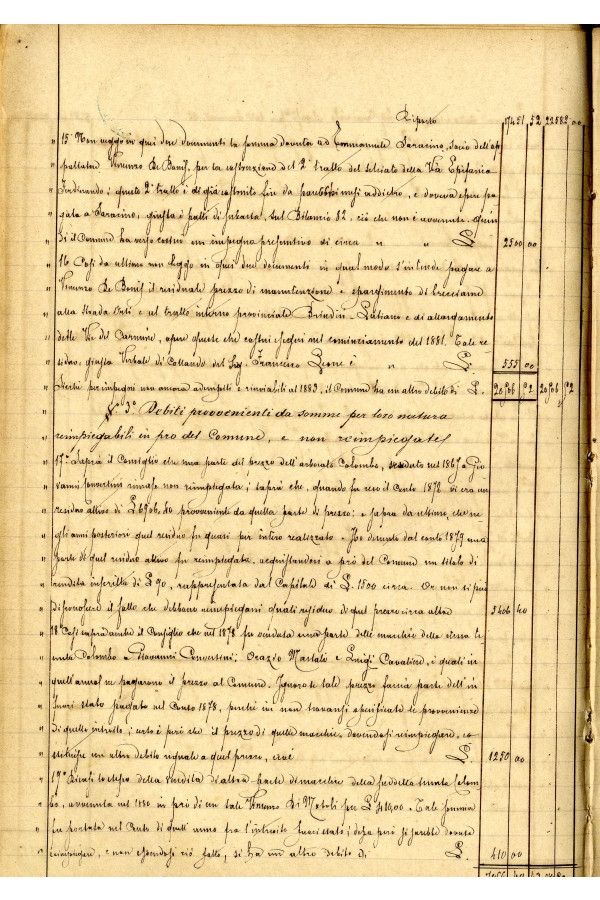 Riporto 17451 52 22582 00
15° Non veggo in quei due documenti la somma dovuta ad Emmanuele Saracino, socio dell'ap
paltatore Vincenzo De Bonis, per la costruzione del 2° tratto del selciato della Via Epifanio
Ferdinando; questo 2° tratto è di già costruito fin da parecchi mesi addietro, e doveva essere pa
gato a Saracino, giusta i patti di subasta, sul Bilancio 82, ciò che non è avvenuto. Quin
di il Comune ha verso costui un impegno presuntivo di circa " " £. 2500 00
16 Così da ultimo non leggo in quei due documenti in qual modo s'intende pagare a
Vincenzo De Bonis il residuale prezzo di manutenzione e spargimento di brecciame
alla strada Orti e al tratto interno provinciale Brindisi-Latiano e di allargamento
delle Vie del Carmine, opere queste che costui eseguì nel cominciamento del 1881. Tale re
siduo, giusta Verbale di Collaudo del Sig. Francesco Leone è " £. 555 00
Sicchè per impegni non ancora adempiti e rinviabili al 1883, il Comune ha un altro debito di £. 20506 52 20506 52
§. 3° Debiti provvenienti da somme per loro natura
reimpiegabili in pro del Comune, e non reimpiegate
17° Saprà il Consiglio che una parte del prezzo dell'arborato Colombo, venduto nel 1867 a Gio
vanni Conventini rimase non reimpiegata; saprà che, quando fu reso il Conto 1872 vi era un
residuo attivo di £ 6906.40 provveniente da quella parte di prezzo; e saprà da ultimo, che ne
gli anni posteriori quel residuo fu quasi per intero realizzato. Ivi durante dal conto 1879 una
parte di quel residuo attivo fu reimpiegata, acquistandosi a prò del Comune un titolo di
rendita inscritta di £ 90, rappresentata dal Capitale di £. 1500 circa. Or non si può
disconoscere il fatto che debbono reimpiegarsi quali residuo di quel prezzo circa altre 5406 40
18° Così saprà anche il Consiglio che nel 1878 fu venduta una parte delle macchie della stessa te
nuta Colombo a Giovanni Conventini, Orazio Martato e Luigi Cavaliere, i quali in
quell'anno ne pagarono il prezzo al Comune. Ignoro se tale prezzo faccia parte dell'in
fuori stato pagato nel Conto 1878, perchè ivi non trovansi specificate le provvenienze
di quello introito; certo è però che il prezzo di quelle macchie, dovendosi reimpiegare, co
stituisce un altro debito uguale a quel prezzo, cioè £. 1250 00
19° Dicasi lo stesso della vendita di altra parte di macchie della suddetta tenuta Colom
bo, avvenuta nel 1880 in prò di un tale Vincenzo Di Notoli per £ 410,00. Tale somma
fu portata nel Conto di quell'anno fra l'introito fuori stato; dessa però si sarebbe dovuta
reimpiegare, e non essendosi ciò fatto, si ha un altro debito di £. 410 00